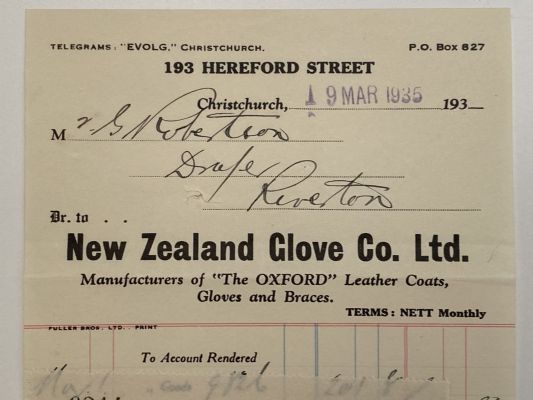 TELEGRAMS: "EVOLG," CHRISTCHURCH. P.O. Box 627
193 HEREFORD STREET
Christchurch, 19 MAR 1935 193
Mr G Robertson
Draper
Riverton
Dr. to . .
New Zealand Glove Co. Ltd.
Manufacturers of "The OXFORD" Leather Coats,
Gloves and Braces.
TERMS: NETT Monthly
FULLER BROS. LTD.. PRINT
To Account Rendered